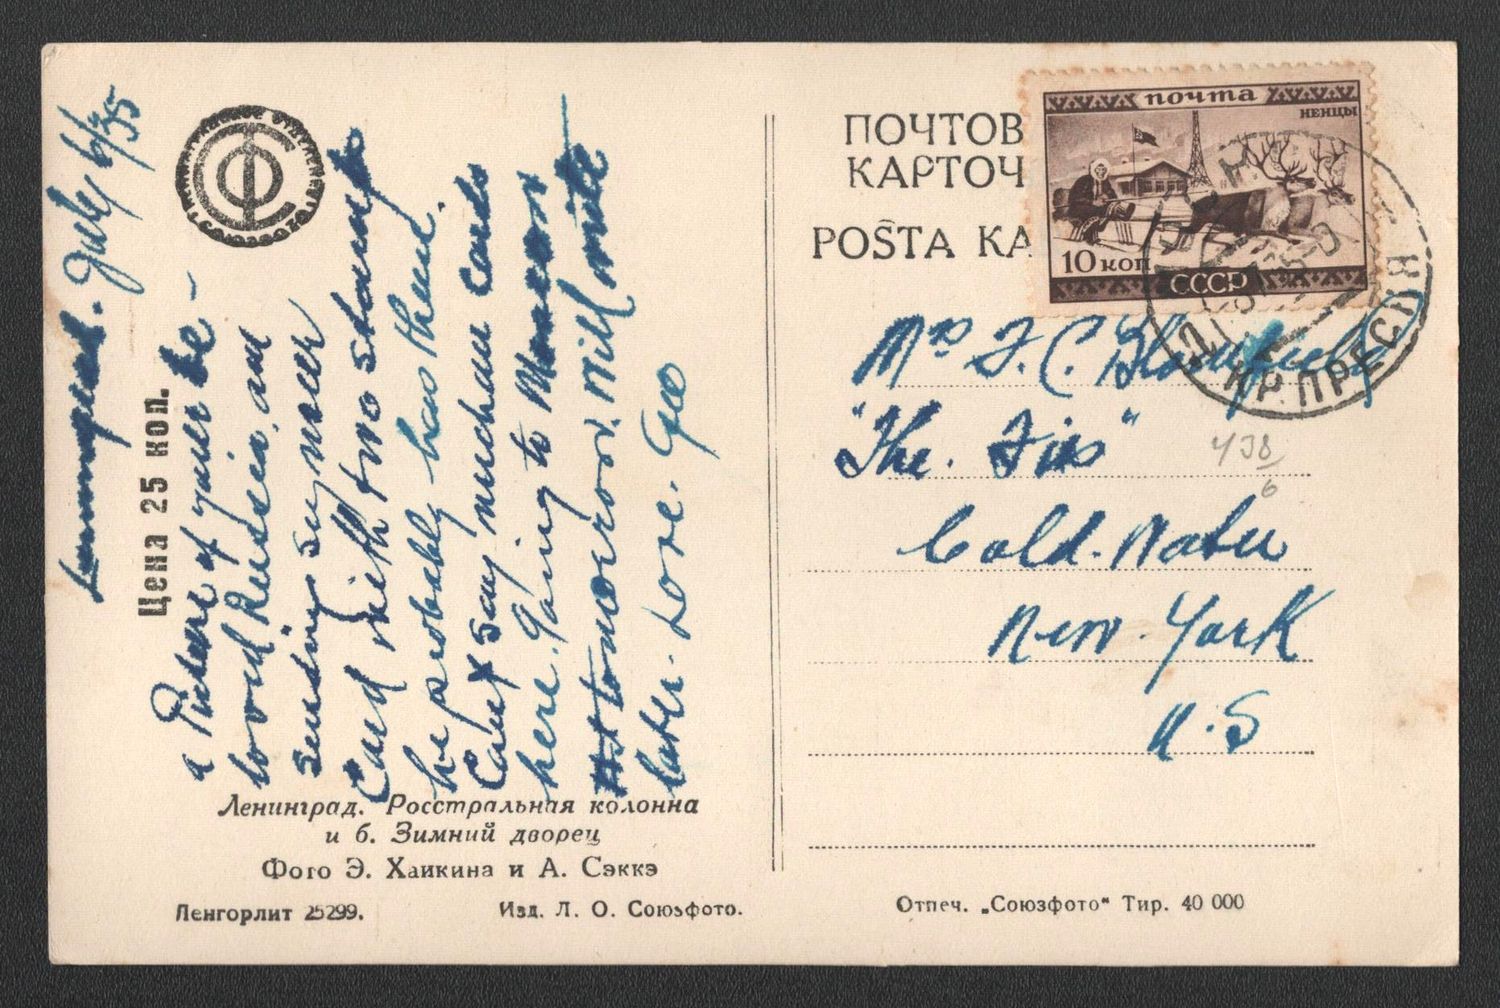 Leningrad. July 6/35
Цена 25 коп.
a Picture of your be-
loved Russia, am
sending Seymour
Card with two stamps
he probably has them.
Can't say much on cards
here. Going to Moscow
tomorrow. Will write
later. Love. Geo
Ленинград. Росстральная колонна
и б. Зимний дворец
Фото Э. Хаикина и А. Сэккэ
Ленгорлит 25299.
Изд. Л. О. Союзфото.
ПОЧТОВ
КАРТОЧ
POŜTA KA
почта
НЕНЦЫ
10 коп
СССР
КР. ПРЕСНЯ
Mrs F. C. Bloomfield
"The. Firs"
Cold-Water
New-York
U.S
438
6
Отпеч. „Союзфото" Тир. 40 000